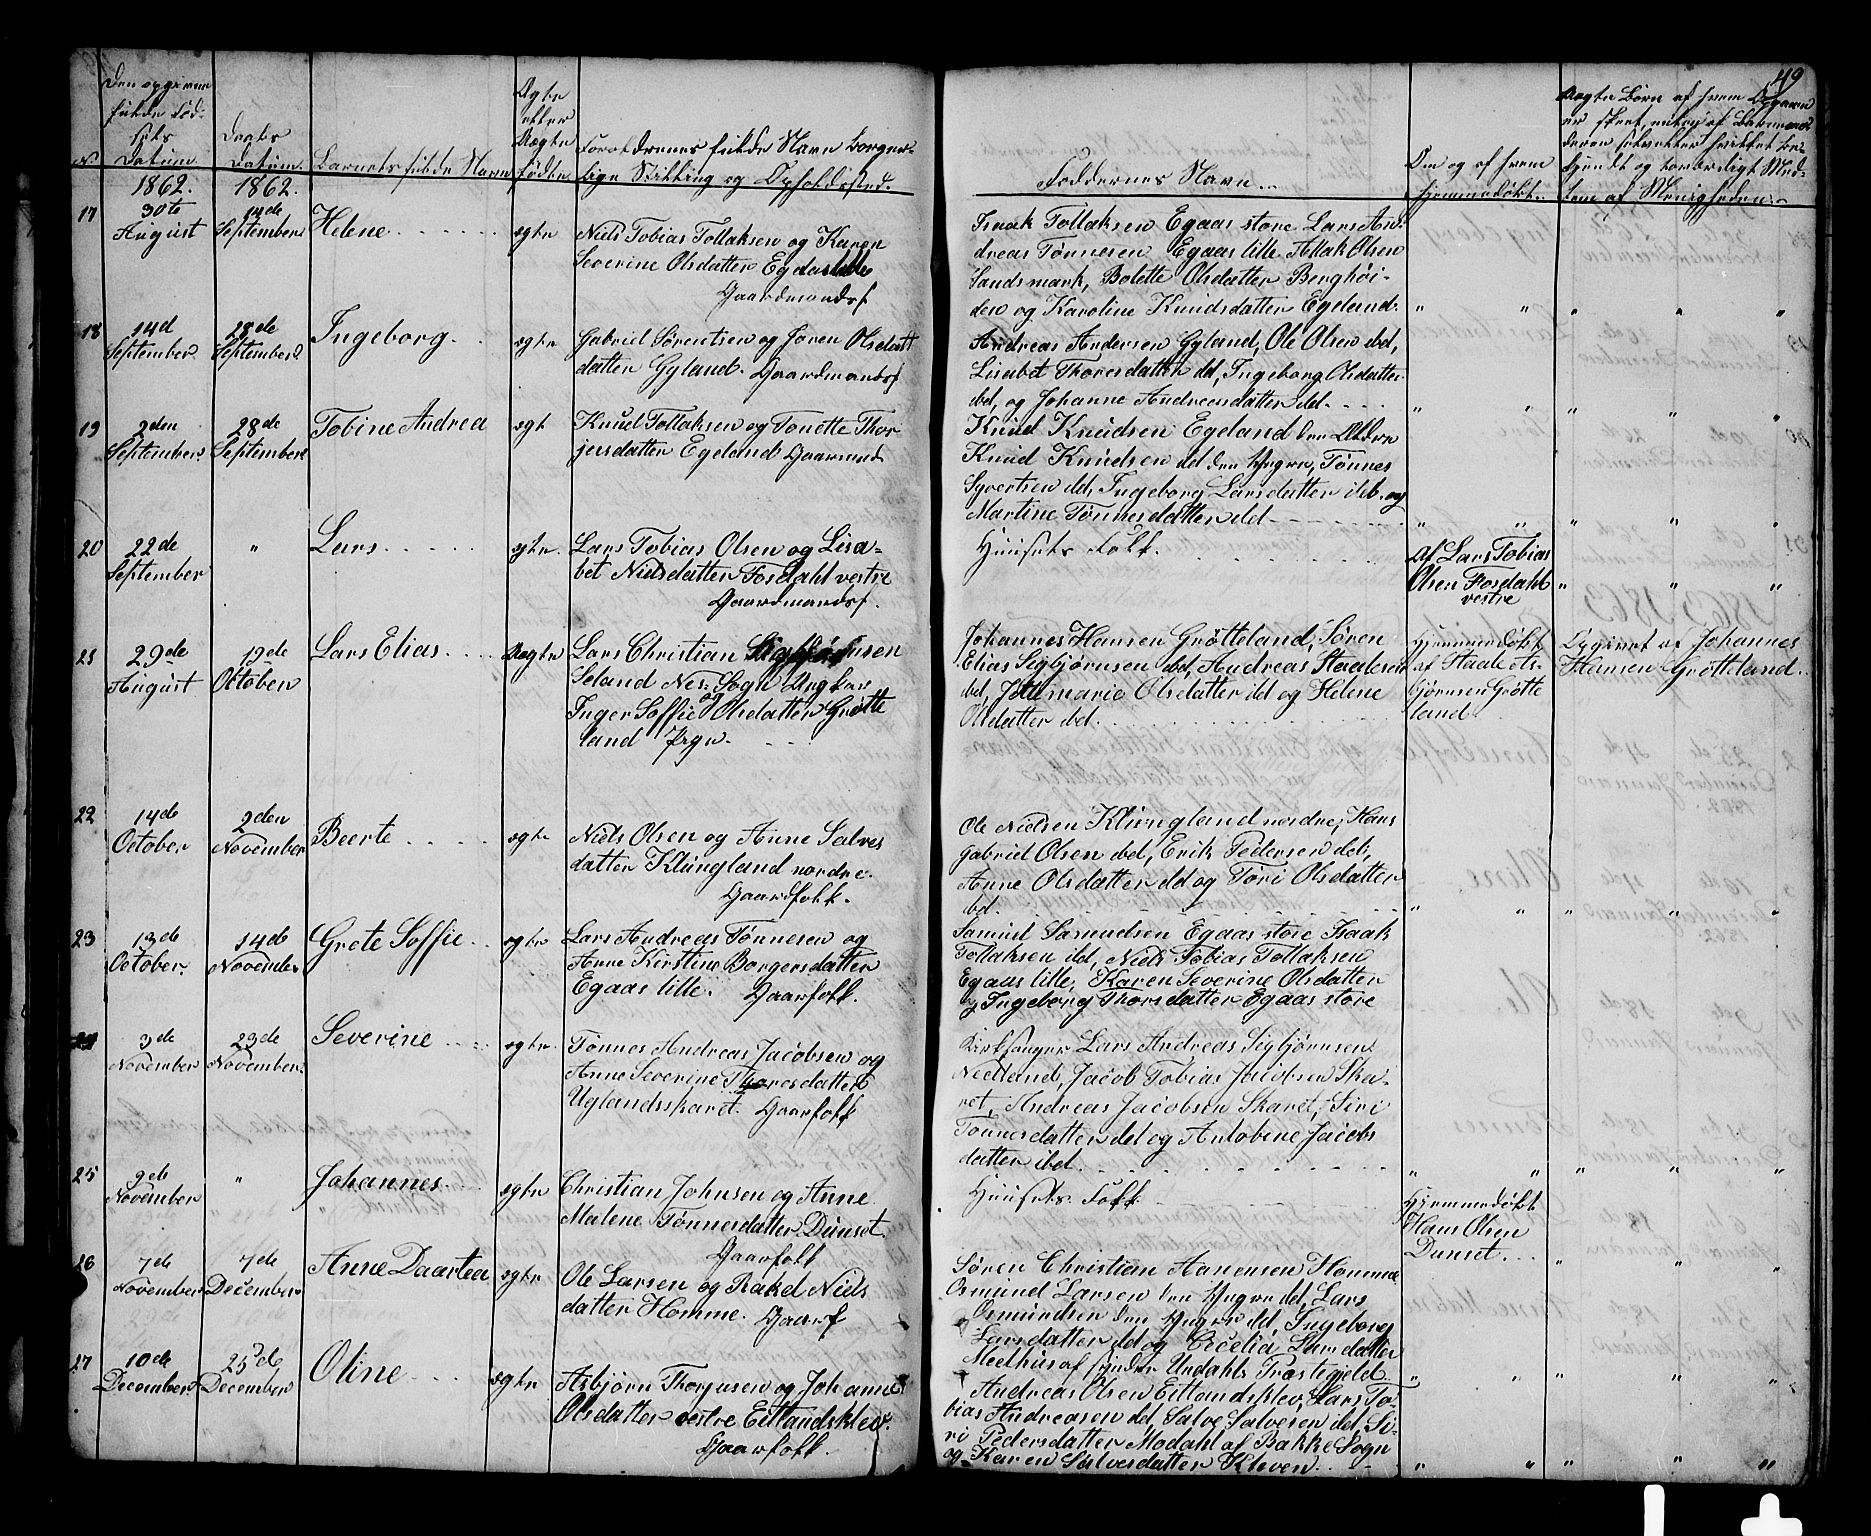 49
Den opgivne
fulde Fød-
sels
Datum
Daabs
Datum.
Barnets fulde Navn
Ægte
eller
Uægte
fødte
Forældrenes fulde Navn borger-
lige Stilling og Opholdssted.
Faddernes Navn
Om og af hvem
hjemmedøbt.
Uægte Børn af hvem Opgaven
er skeet, enten af Barnemo-
deren selv eller
og Med-
lem af Menigheden.
1862. 1862.
17 30te August 14de September Helene ægte
Niels Tobias Tollaksen og Karen
Severine Olsdatter Egaas lille
Gaardmandsf
Isaak Tollaksen Egaas store Lars An-
dreas Tønnesen Egaas lille Atlak Olsen
Sandsmark, Bolette Olsdatter Berghøi-
den og Karoline Knudsdatter Egeland.
18 14d September 28de September Ingeborg. ægte
Gabriel Sørentsen og Joren Olsdatt
datter Gyland. Gaardmandsf
Andreas Andersen Gyland, Ole Olsen ibd,
Lisabet Thoresdatter ibd, Ingeborg Olsdatter
ibd, og Johanne Andreasdatter ibd.
19 2den September 28de September Tobine Andrea ægt
Knud Tollaksen og Tonette Thor-
jersdatter Egeland Gaarmand
Knud Knudsen Egeland den Ældre
Knud Knudsen ibd den Yngre, Tønnes
Syvertsen ibd, Ingeborg Larsdatter ibd. og
Martine Tønnesdatter ibd
20 22de September " Lars ægte.
Lars Tobias Olsen og Lisa-
bet Nielsdatter Fosdahl vestre
Gaardmandsf.
Huusets Folk.
Af Lars Tobias
Olsen Fosdahl
vestre
21 29de August 19de October Lars Elias Uægte
Lars Christian Sigbjørnsen
Seland Nes Sogn Ungkar
og
Inger Soffie Olsdatter Grøtte
land Pige.
Johannes Hansen Grøtteland, Søren
Elias Sigbjørnsen ibd, Andreas Staalesen
ibd, Olsdatter ibd og Helene
Olsdatter ibd.
Hjemmedøbt
af Staale As-
bjørnsen Grøtte
land
Opgivet af Johannes
Hansen Grøtteland.
22 14de October 2den November Beerte ægte
Niels Olsen og Anne Salves
datter Klungland nordre.
Gaardfolk.
Ole Nielsen Klungland nordre, Hans
Gabriel Olsen ibd, Erik Pedersen ibd,
Anne Olsdatter ibd og Tori Olsdatter
ibd.
23 13de October. 14de November Grete Soffie ægte
Lars Andreas Tønnesen og
Anne Kirstine Borgersdatter
Egaas lille. Gaarfolk.
Samuel Samudsen Egaas store Isaak
Tollaksen ibd, Niels Tobias Tollaksen
Egaas lille, Karen Severine Olsdatter
og Ingeborg Thorsdatter Egaas store
24 3de November 23de November. Severine ægte
Tønnes Andreas Jacobsen og
Anne Severine Thoresdatter
Uglandsskaret. Gaarfolk
Kirksanger Lars Andreas Sigbjørnsen
Nedland, Jacob Tobias Jacobsen Ska-
ret, Andreas Jacobsen Skaret, Siri
Tønnesdatter ibd og Antobine Jacobs
datter ibd.
25 2de November " Johannes ægte
Christian Johnsen og Anne
Malene Tønnesdatter Dunset
Gaarfolk
Huusets Folk
Hjemmedøbt
Hans Olsen
Dunset.
26 7de November 7de December Anne Daartea ægte
Ole Larsen og Rakel Niels
datter Homme. Gaarf
Søren Christian Aanensen Homme
Osmund Larsen den Yngre ibd, Lars
Osmundsen den Yngre ibd, Ingeborg
Larsdatter ibd og Cecelia Larsdatter
Meelhus af Søndre Undahls Præstegjeld.
27 10de December 25de December Oline ægte
Asbjørn Thorjusen og Johanne
Olsdatter vestre Eitlandsklev.
Gaarfolk.
Andreas Olsen Eitlandsklev, Lars To-
bias Andreasen ibd, Salve Salvesen ibd, Si-
ri Pedersdatter Modahl af Bakke Sogn
og Karen Salvesdatter Kleven.